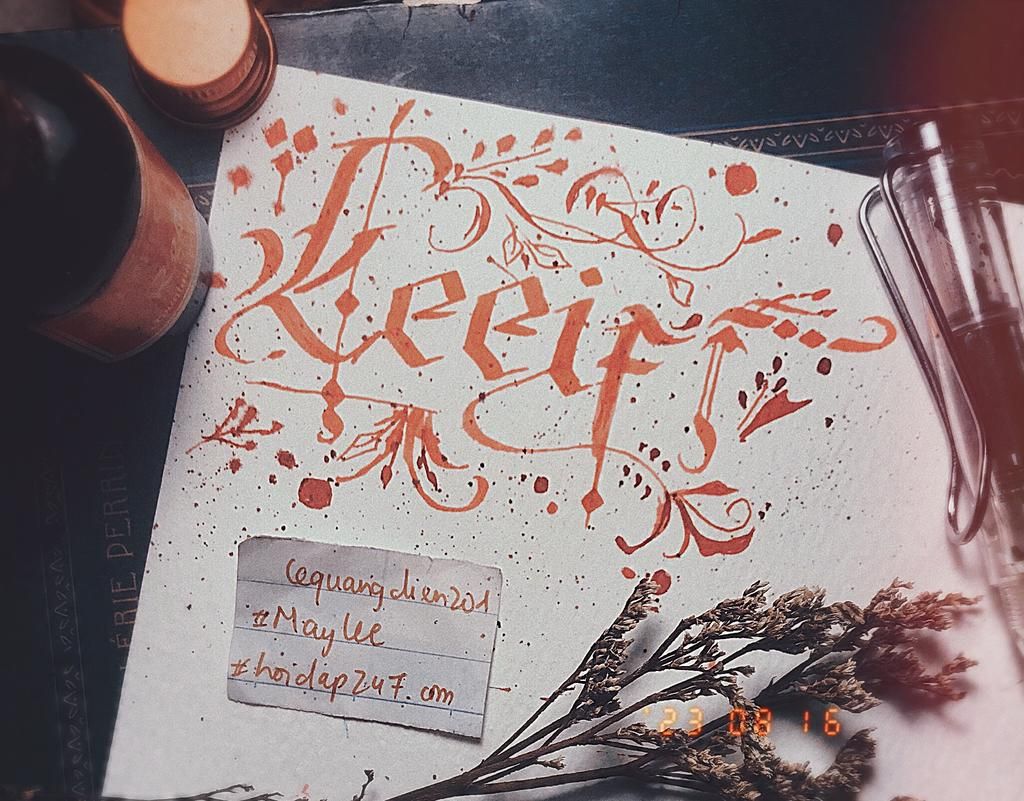 Keeif
lequangdien201
#MayLee
#hoidap247.com
ÉRIE PERRI
'23 08 16